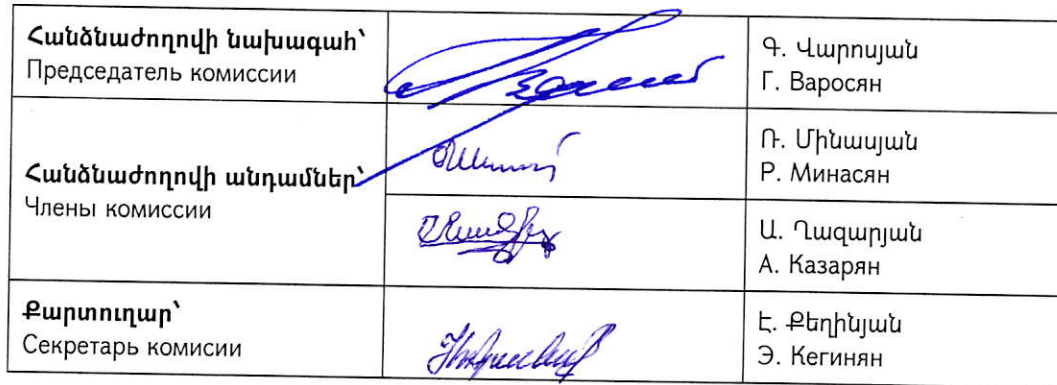 Հանձնաժողովի նախագահ՝
Председатель комиссии
Գ. Վարոսյան
Г. Варосян
Հանձնաժողովի անդամներ՝
Члены комиссии
Ռ. Մինասյան
Р. Минасян
Ա. Ղազարյան
А. Казарян
Քարտուղար՝
Секретарь комисии
Է. Քեղինյան
Э. Кегинян